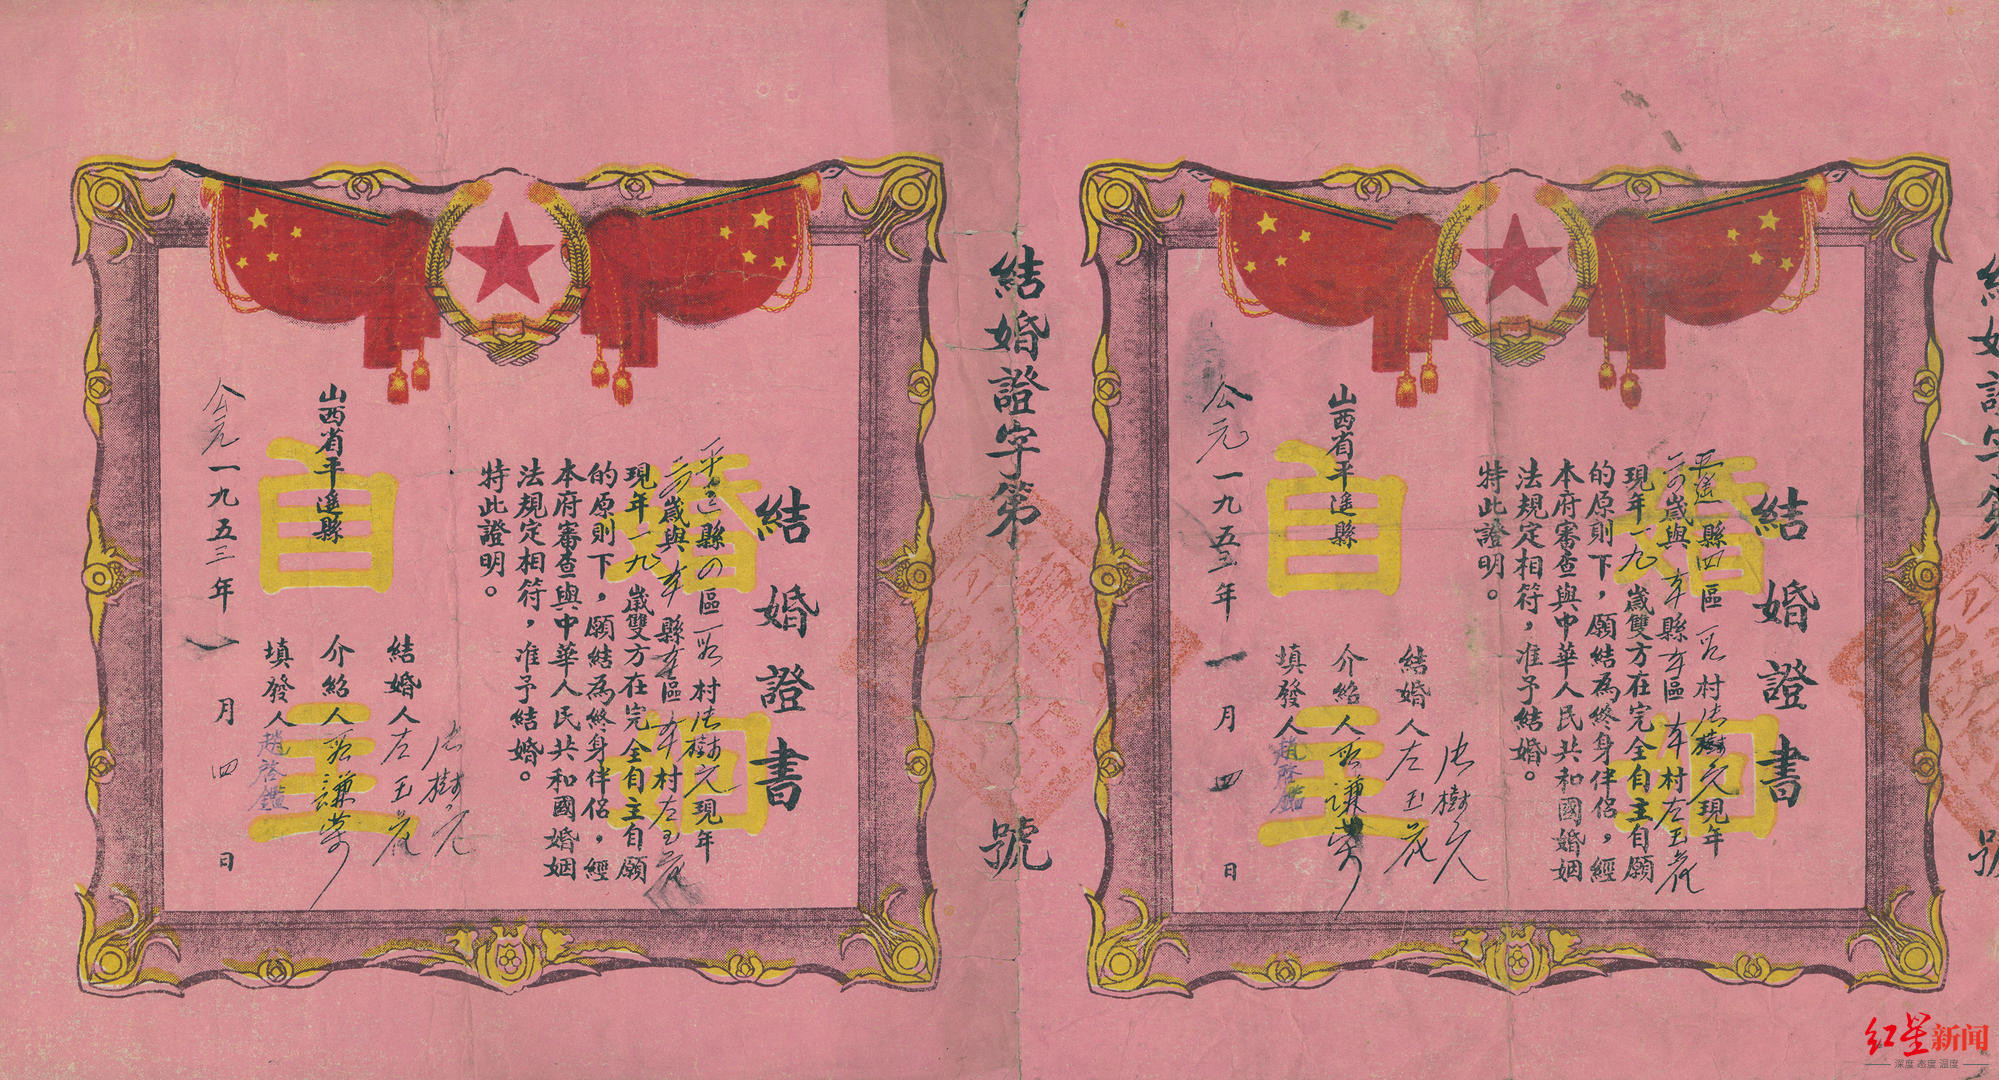 結婚證書
平遥縣四區
村
樹元現年
歲與本縣本區本村左玉花
現年一九歲雙方在完全自主自願
的原則下，願結為終身伴侶，經
本府審查與中華人民共和國婚姻
法規定相符，准予結婚。
特此證明。
結婚人左玉花
樹元
介紹人
謙
填發人趙啓鑑
山西省平遥縣
公元一九五三年一月四日
婚姻
自主
結婚證字第
號
結婚證書
平遥縣四區
村
樹元現年
歲與本縣本區本村左玉花
現年一九歲雙方在完全自主自願
的原則下，願結為終身伴侶，經
本府審查與中華人民共和國婚姻
法規定相符，准予結婚。
特此證明。
結婚人左玉花
樹元
介紹人
謙
填發人趙啓鑑
山西省平遥縣
公元一九五三年一月四日
婚姻
自主
紅星新闻
深度 态度 温度